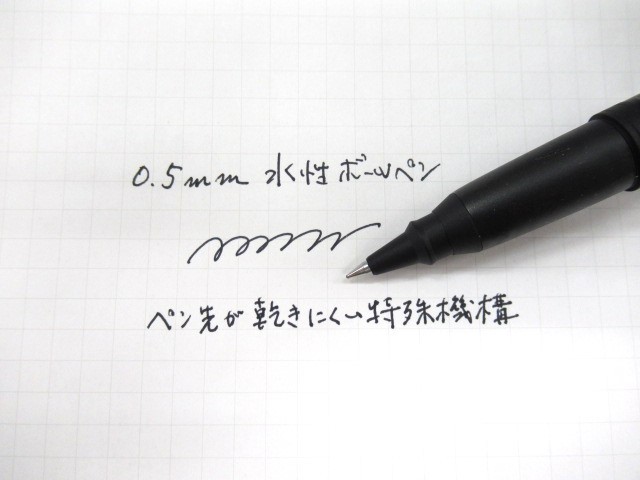 0.5mm 水性ボールペン
ペン先が乾きにくい特殊機構